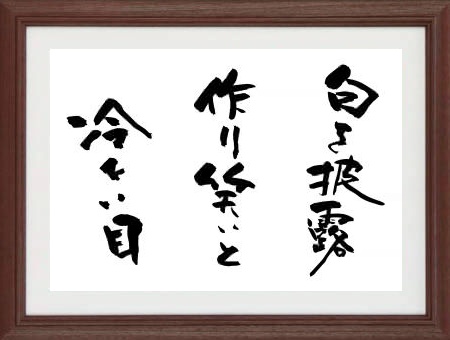 句を披露
作り笑いと
冷たい目